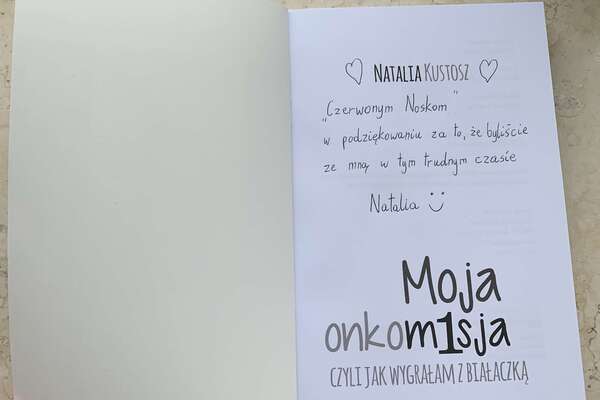 NATALIA KUSTOSZ
„Czerwonym Noskom"
w podziękowaniu za to, że byliście
ze mną w tym trudnym czasie
Natalia
Moja
onkom1sja
CZYLI JAK WYGRAŁAM Z BIAŁACZKĄ